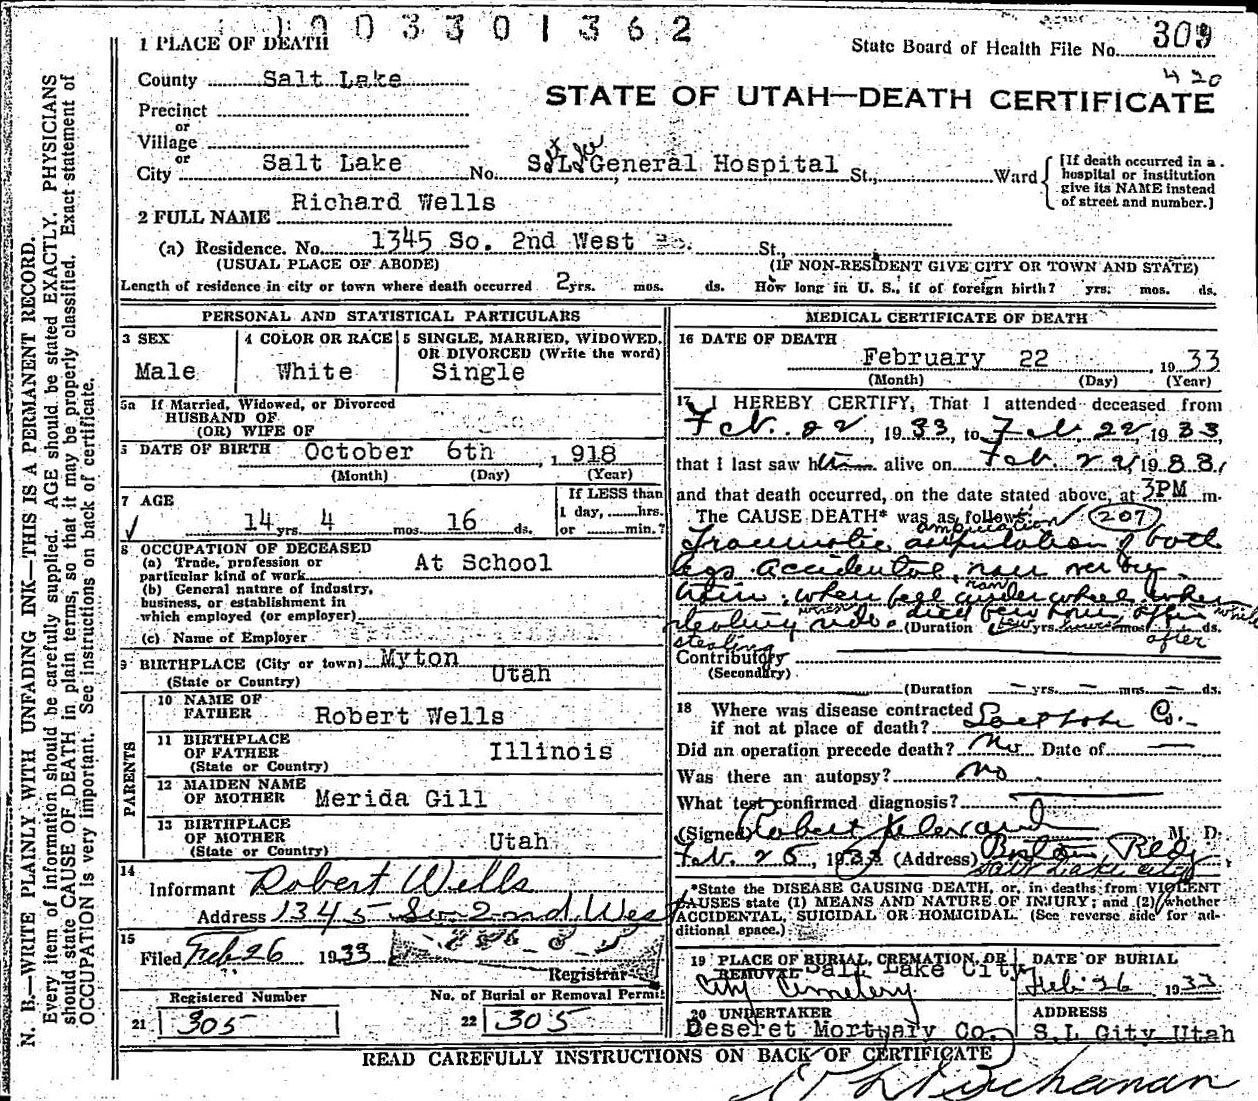 1003301362
1 PLACE OF DEATH
State Board of Health File No. 309
420
County Salt Lake
STATE OF UTAH—DEATH CERTIFICATE
Precinct
or
Village
or
City Salt Lake No. S. L. General Hospital St., Ward
Salt Lake
[If death occurred in a hospital or institution give its NAME instead of street and number.]
2 FULL NAME Richard Wells
(a) Residence. No. 1345 So. 2nd West St.,
(USUAL PLACE OF ABODE) (IF NON-RESIDENT GIVE CITY OR TOWN AND STATE)
Length of residence in city or town where death occurred 2 yrs. mos. ds. How long in U. S., if of foreign birth? yrs. mos. ds.
PERSONAL AND STATISTICAL PARTICULARS
3 SEX
Male
4 COLOR OR RACE
White
5 SINGLE, MARRIED, WIDOWED, OR DIVORCED (Write the word)
Single
5a If Married, Widowed, or Divorced
HUSBAND OF
(OR) WIFE OF
6 DATE OF BIRTH October 6th, 1918
(Month) (Day) (Year)
7 AGE
14 yrs. 4 mos. 16 ds.
If LESS than
1 day, hrs.
or min.?
8 OCCUPATION OF DECEASED
(a) Trade, profession or
particular kind of work At School
(b) General nature of industry,
business, or establishment in
which employed (or employer)
(c) Name of Employer
9 BIRTHPLACE (City or town) Myton
(State or Country) Utah
PARENTS
10 NAME OF
FATHER Robert Wells
11 BIRTHPLACE
OF FATHER Illinois
(State or Country)
12 MAIDEN NAME
OF MOTHER Merida Gill
13 BIRTHPLACE
OF MOTHER
(State or Country) Utah
14
Informant Robert Wells
Address 1345 So. 2nd West
15
Filed Feb 26 1933
Registrar
Registered Number
21 305
No. of Burial or Removal Permit
22 305
MEDICAL CERTIFICATE OF DEATH
16 DATE OF DEATH
February 22, 1933
(Month) (Day) (Year)
17 I HEREBY CERTIFY, That I attended deceased from
Feb. 22, 1933, to Feb. 22, 1933,
that I last saw him alive on Feb. 22, 1933,
and that death occurred, on the date stated above, at 3PM m.
The CAUSE DEATH* was as follows: 207
amputation
Traumatic amputation of both
legs accidental, run over by
ran
train, when fell under wheel when while
stealing ride. died few hours after
(Duration few yrs. hours mos. ds.
stealing after
Contributory
(Secondary)
(Duration — yrs. — mos. — ds.
18 Where was disease contracted
if not at place of death? Salt Lake Co.
Did an operation precede death? No Date of —
Was there an autopsy? No
What test confirmed diagnosis?
(Signed) Robert M. D.
Feb. 25, 1933 (Address) Boston Bldg
Salt Lake City
*State the DISEASE CAUSING DEATH, or, in deaths from VIOLENT
CAUSES state (1) MEANS AND NATURE OF INJURY; and (2) whether
ACCIDENTAL, SUICIDAL OR HOMICIDAL. (See reverse side for ad-
ditional space.)
19 PLACE OF BURIAL, CREMATION, OR
REMOVAL Salt Lake City
City Cemetery
DATE OF BURIAL
Feb. 26 1933
20 UNDERTAKER
Deseret Mortuary Co.
ADDRESS
S.L City Utah
READ CAREFULLY INSTRUCTIONS ON BACK OF CERTIFICATE
Buchanan
N. B.—WRITE PLAINLY WITH UNFADING INK—THIS IS A PERMANENT RECORD.
Every item of information should be carefully supplied. AGE should be stated EXACTLY. PHYSICIANS
should state CAUSE OF DEATH in plain terms, so that it may be properly classified. Exact statement of
OCCUPATION is very important. See instructions on back of certificate.